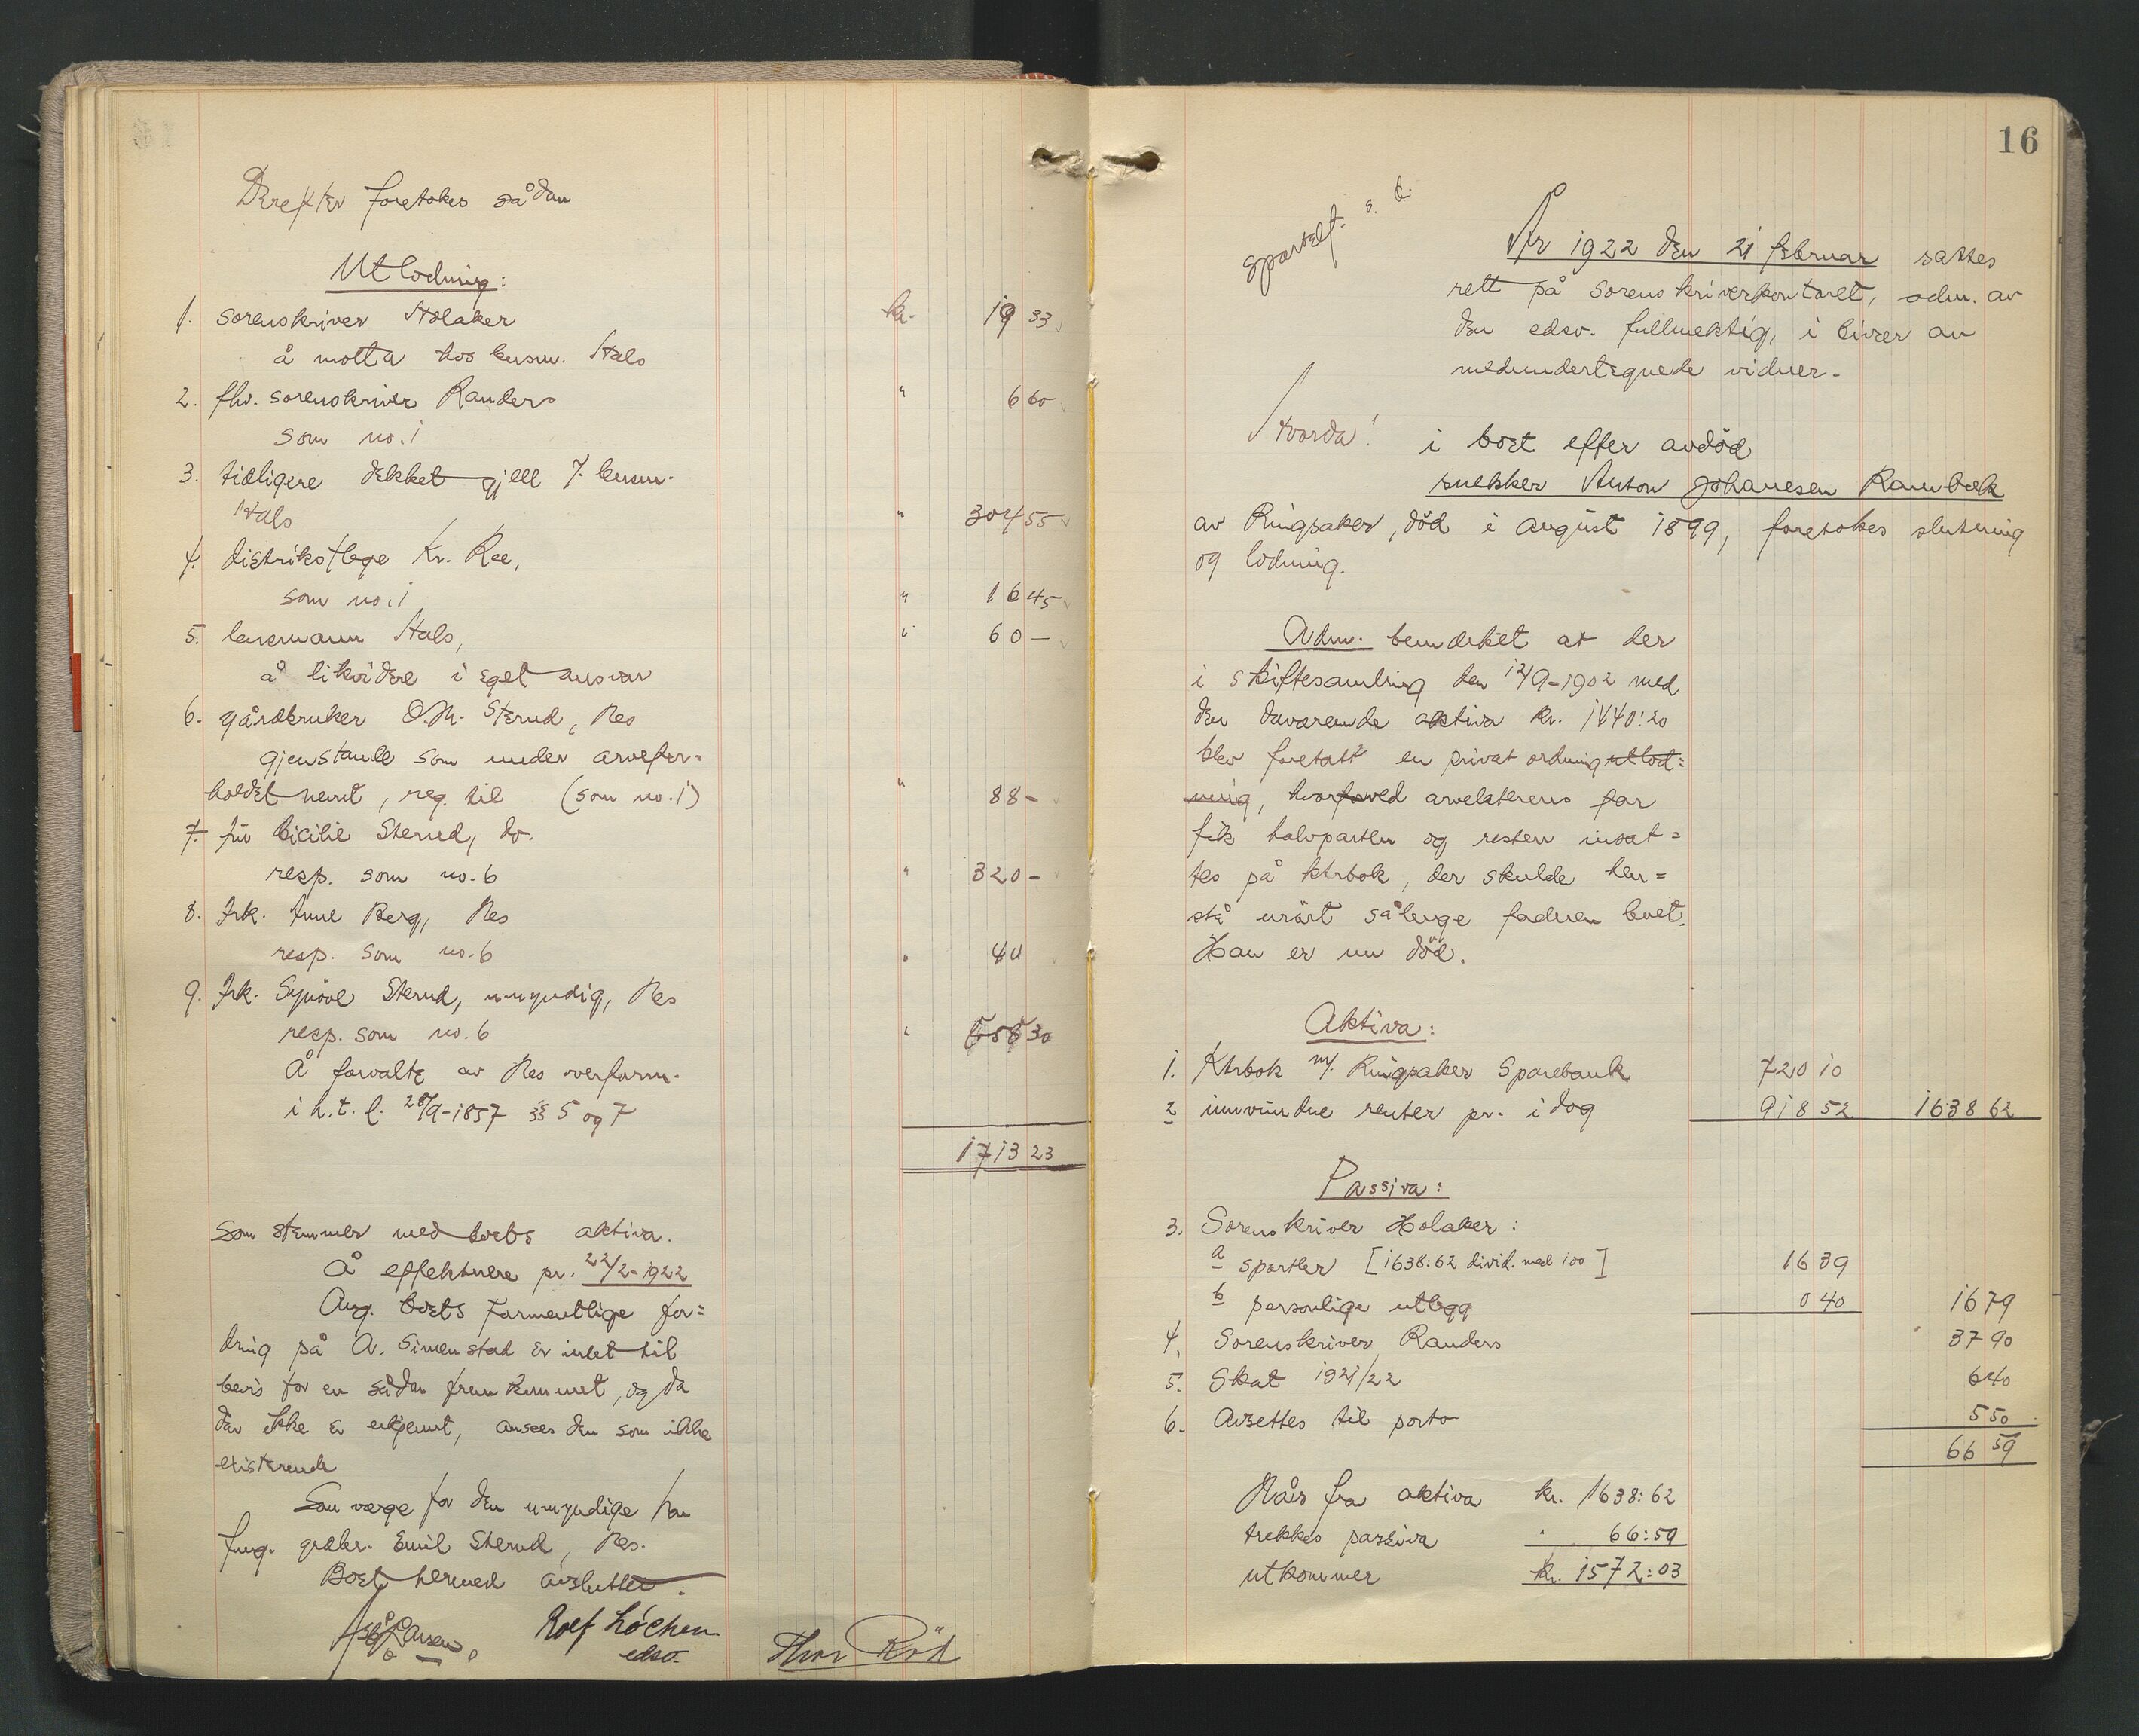 Derefter foretokes sådan
Utlodning:
1. sorenskriver Holaker kr. 19 33
å motta hos lensm. Hals
2. fhv. sorenskriver Randers " 6 60
som no. 1
3. tidligere dekket gjell f. lensm.
Hals " 304 55
4. distriktslege Kr. Ree,
som no. 1 " 16 45
5. lensmann Hals, " 60 —
å likvidere i eget ansvar
6. gårdbruker O. M. Sterud, Nes
gjenstande som under arvefor=
holdet nevnt, reg. til (som no. 1) " 88 -
7. fru Cicilie Sterud, do.
resp. som no. 6 " 320 -
8. frk. Anne Berg, Nes
resp. som no. 6 " 40
9. Frk. Synöve Sterud, umyndig, Nes
resp. som no. 6 " 858 30
Å forvalte av Nes overform.
i h. t. l. 28/9-1857 §§ 5 og 7
1713 23
som stemmer med boets aktiva.
Å effektuere pr. 22/2-1922
Ang. boets formentlige for=
dring på A. Simenstad er intet til
bevis for en sådan fremkommet, og da
den ikke er erkjent, ansees den som ikke
existerende
Som verge for den umyndige
fung. grdbr. Emil Sterud, Nes.
Boet hermed avsluttet.
Rolf Löchen
edsv.
Thor Röd
16
sportelf. s. d.
År 1922 den 21 februar sattes
rett på sorenskriverkontoret, adm. av
den edsv. fullmektig, i biver av
medundertegnede vidner.
Hvorda! i boet efter avdöd
snekker Anton Johanesen Rambæk
av Ringsaker, död i august 1899, foretokes slutning
og lodning.
Adm. bemerket at der
i skiftesamling den 12/9-1902 med
den daværende aktiva kr. 1440:20
blev foretatt en privat ordning utlod=
ning, hvorforved arvelaterens far
fik halvparten og resten insat=
tes på ktrbok, der skulde hen=
stå urört sålenge faderen levet.
Han er nu död.
Aktiva:
1. Ktrbok m/. Ringsaker Sparebank 720 10
2 innvundne renter pr. i dag 918 52 1638 62
Passiva:
3. Sorenskriver Holaker:
a sportler [1638:62 divid. med 100] 16 39
b personlige utlegg 0 40 16 79
4. Sorenskriver Randers 37 90
5. Skat 1921/22 6 40
6. Avsettes til porto 5 50
66 59
Når fra aktiva kr. 1638:62
trekkes passiva " 66:59
utkommer kr. 1572:03